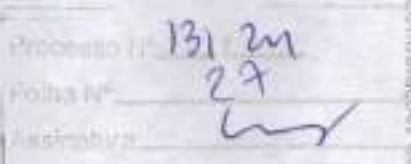 Processo Nº 131
Folha Nº 27
Assinatura